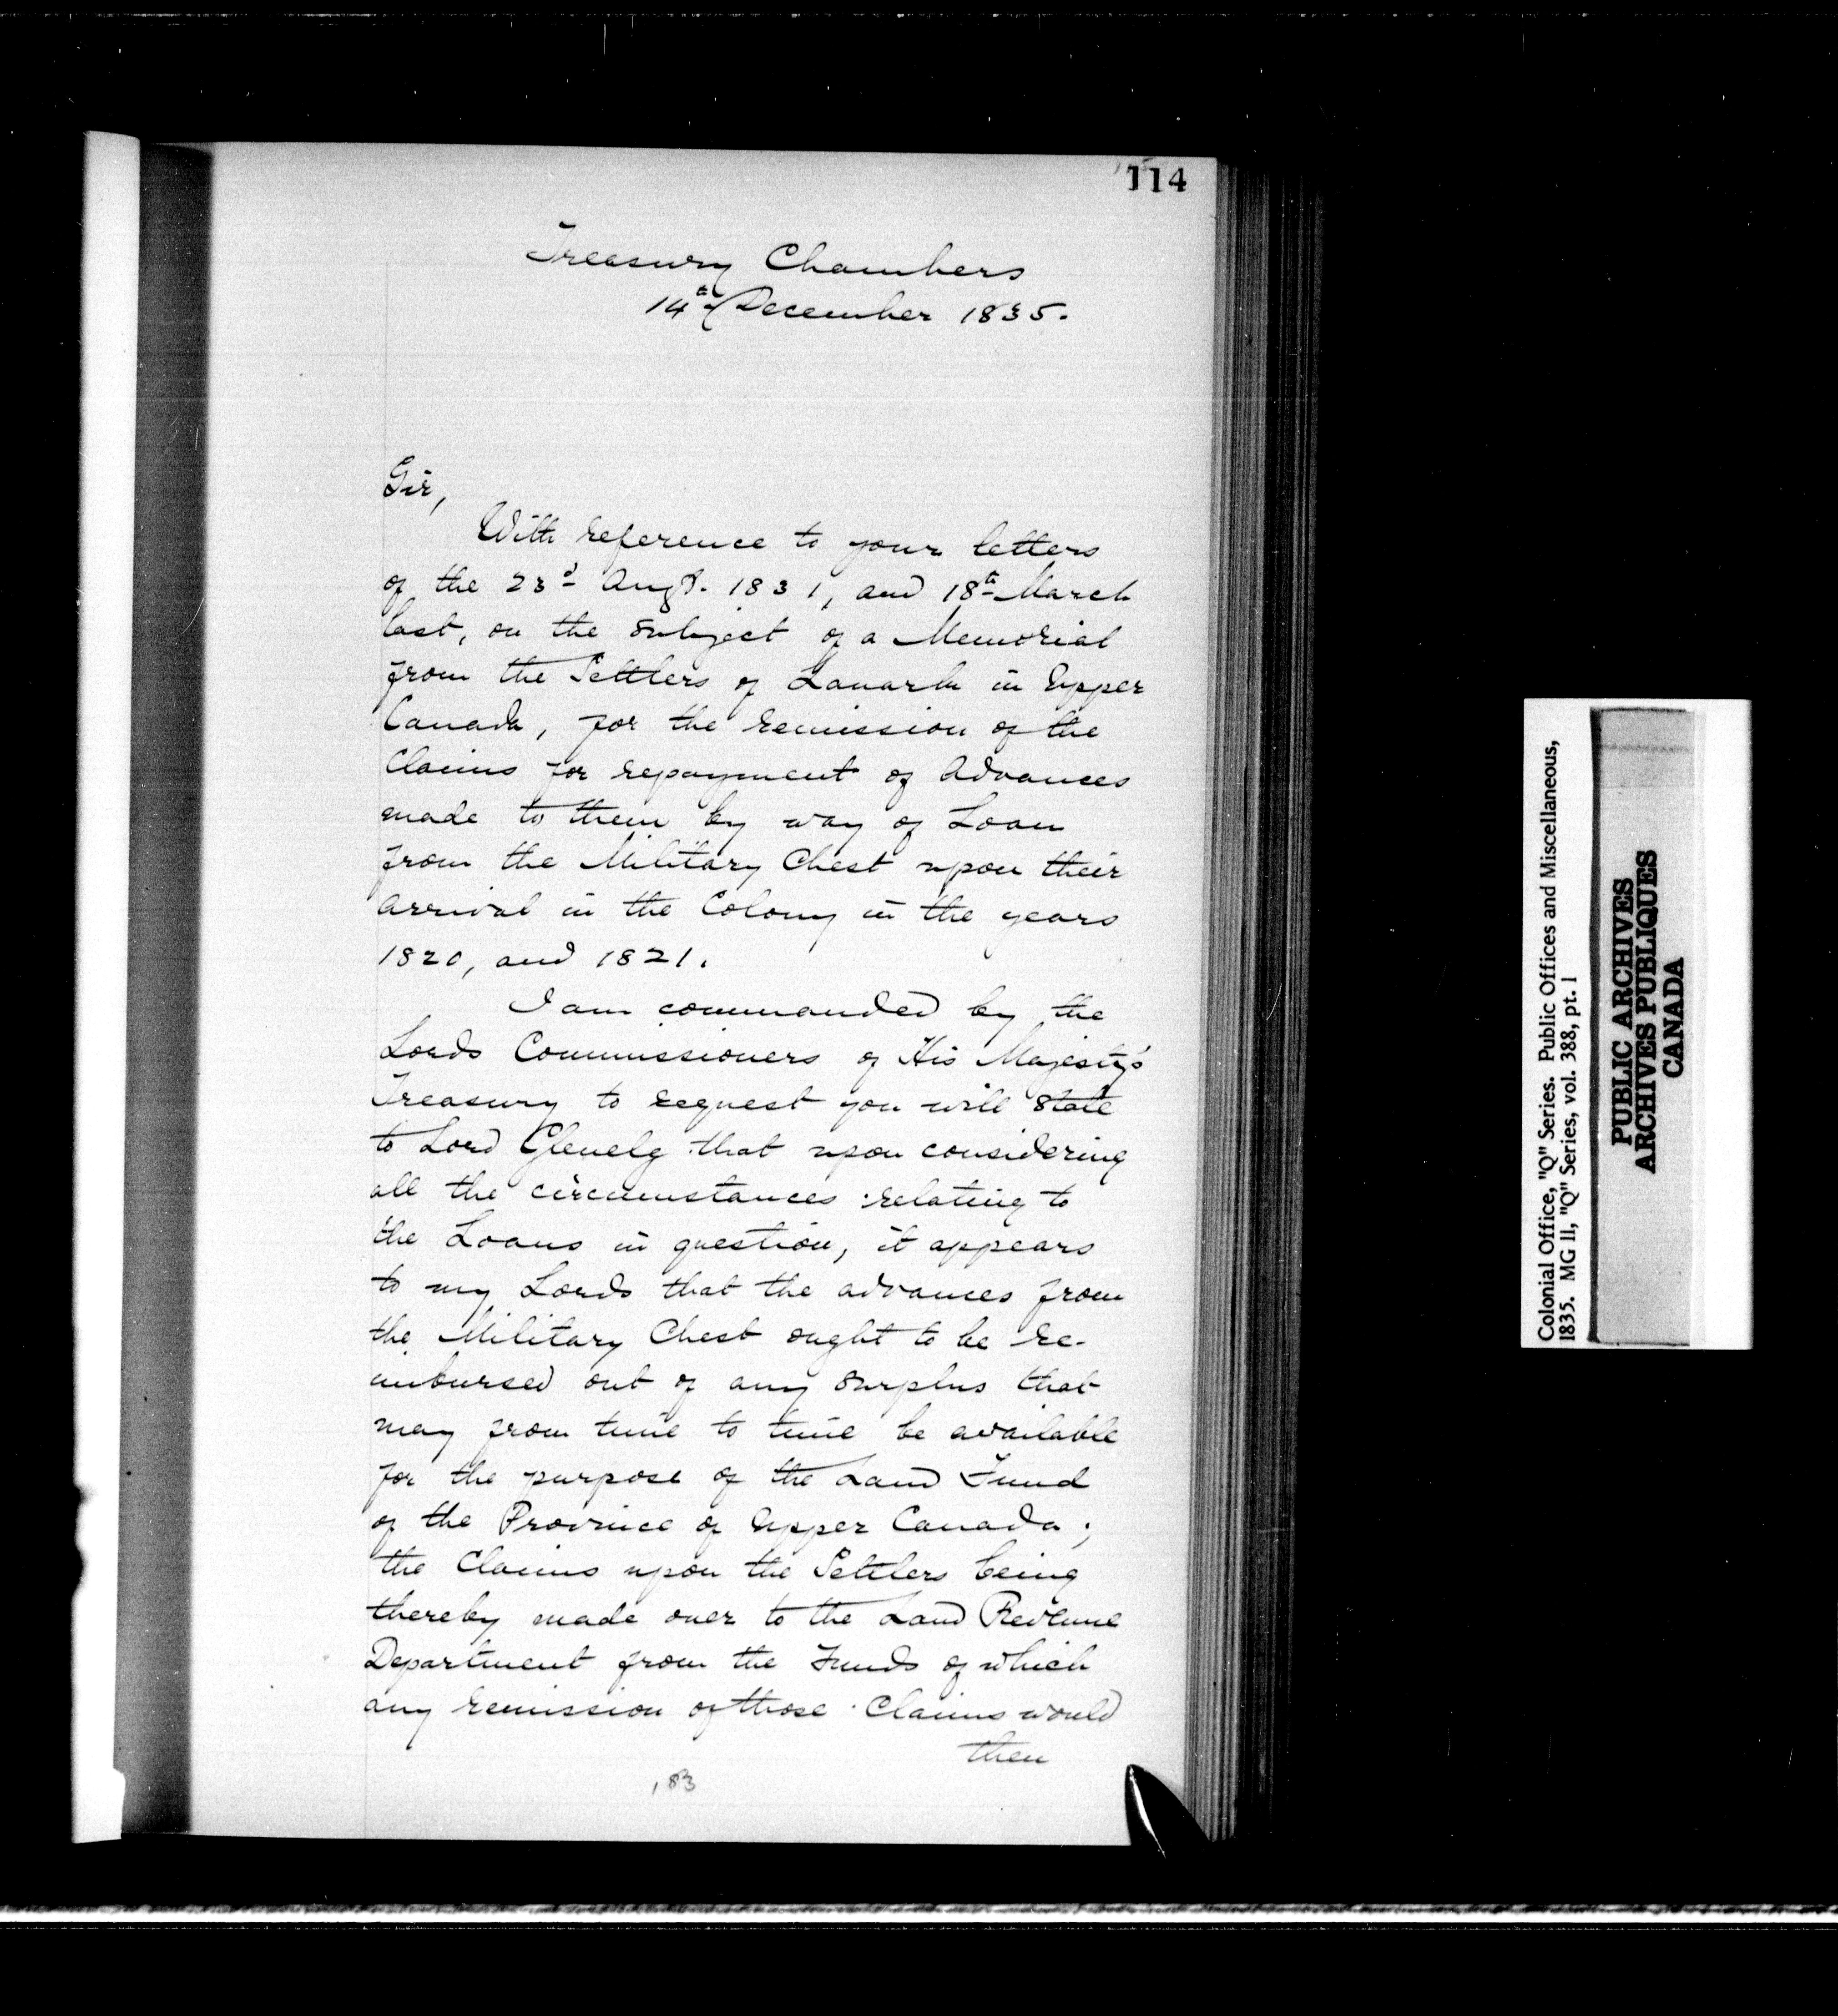 114
Treasury Chambers
14th December 1835.
Sir,
With reference to your letters
of the 23d Augt. 1831, and 18th March
last, on the subject of a Memorial
from the Settlers of Lanark in Upper
Canada, for the remission of the
Claims for repayment of Advances
made to them by way of Loan
from the Military Chest upon their
arrival in the Colony in the years
1820, and 1821.
I am commanded by the
Lords Commissioners of His Majesty's
Treasury to request you will state
to Lord Glenelg that upon considering
all the circumstances relating to
the Loans in question, it appears
to my Lords that the advances from
the Military Chest ought to be re-
imbursed out of any surplus that
may from time to time be available
for the purpose of the Land Fund
of the Province of Upper Canada;
the Claims upon the Settlers being
thereby made over to the Land Revenue
Department from the Funds of which
any remission of those Claims would
then
183
Colonial Office, "Q" Series. Public Offices and Miscellaneous,
1835. MG 11, "Q" Series, vol. 388, pt. 1
PUBLIC ARCHIVES
ARCHIVES PUBLIQUES
CANADA